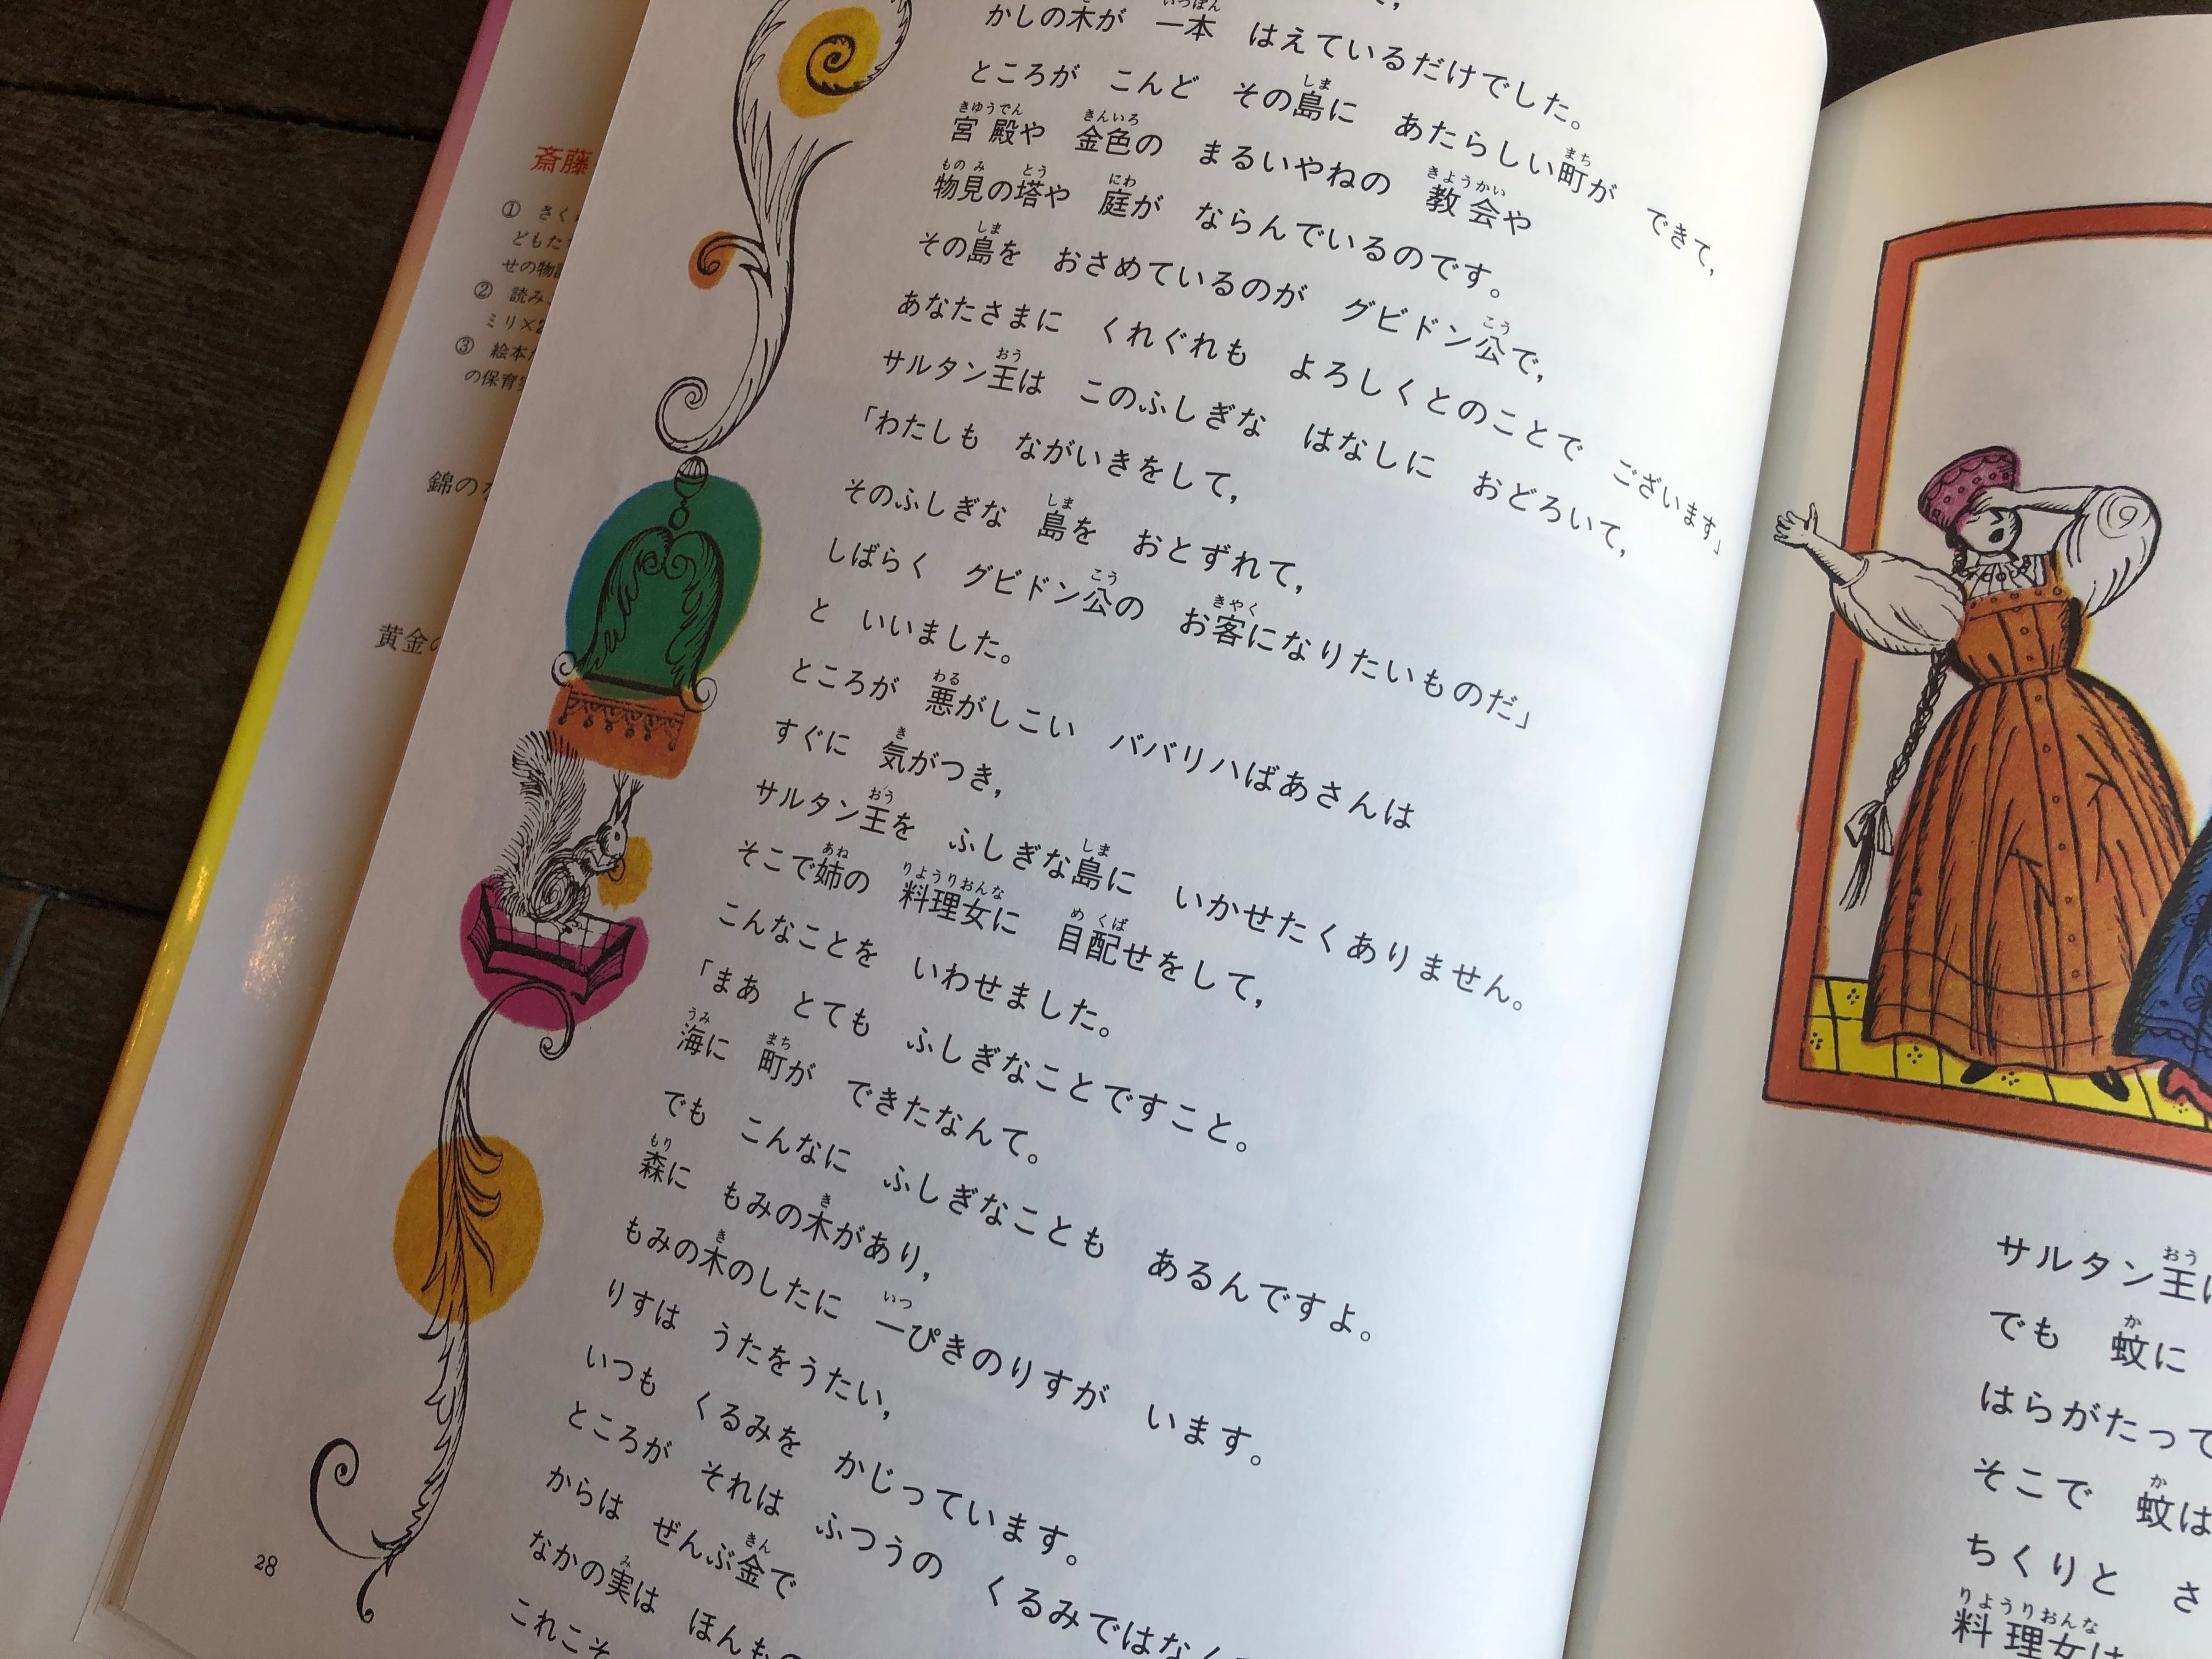 斎藤
① さく
どもた
せの物
② 読み
ミリ×2
③ 絵本
の保育
錦の
黄金の
かしの木が　一本　はえているだけでした。
ところが　こんど　その島に　あたらしい町が　できて，
宮殿や　金色の　まるいやねの　教会や
物見の塔や　庭が　ならんでいるのです。
その島を　おさめているのが　グビドン公で，
あなたさまに　くれぐれも　よろしくとのことで　ございます」
サルタン王は　このふしぎな　はなしに　おどろいて，
「わたしも　ながいきをして，
そのふしぎな　島を　おとずれて，
しばらく　グビドン公の　お客になりたいものだ」
と　いいました。
ところが　悪がしこい　ババリハばあさんは
すぐに　気がつき，
サルタン王を　ふしぎな島に　いかせたくありません。
そこで姉の　料理女に　目配せをして，
こんなことを　いわせました。
「まあ　とても　ふしぎなことですこと。
海に　町が　できたなんて。
でも　こんなに　ふしぎなことも　あるんですよ。
森に　もみの木があり，
もみの木のしたに　一ぴきのりすが　います。
りすは　うたをうたい，
いつも　くるみを　かじっています。
ところが　それは　ふつうの　くるみではなく
からは　ぜんぶ金で
なかの実は　ほんもの
これこそ
28
サルタン王は
でも　蚊に
はらがたって
そこで　蚊は
ちくりと　さ
料理女は